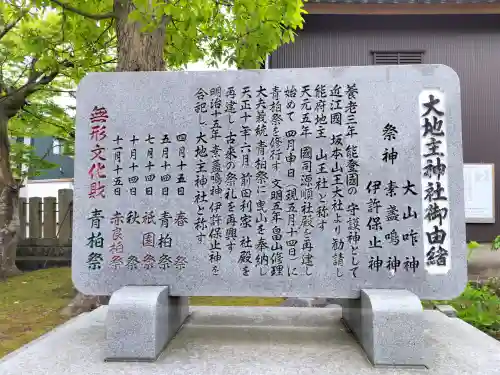 大地主神社御由緒
祭神
大山咋神
素盞鳴神
伊許保止神
養老二年 能登國の守護神として
近江國 坂本山王大社より勧請し
能府地主 山王社と称す
天元五年 國司源順社殿を再建し
始めて 四月申日(現五月十四日)に
大夫義統 青柏祭に曳山を奉納し
祭を行う 文明五年 畠山修理
天正十年六月 前田利家 社殿を
再建し 古来の祭礼を再興す
明治十五年 素盞鳴神 伊許保止神を
合祀し 大地主神社と称す
四月十五日 春祭
五月十四日 青柏祭
七月十四日 祇園祭
十月十四日 秋祭
十一月十五日
無形文化財 青柏祭